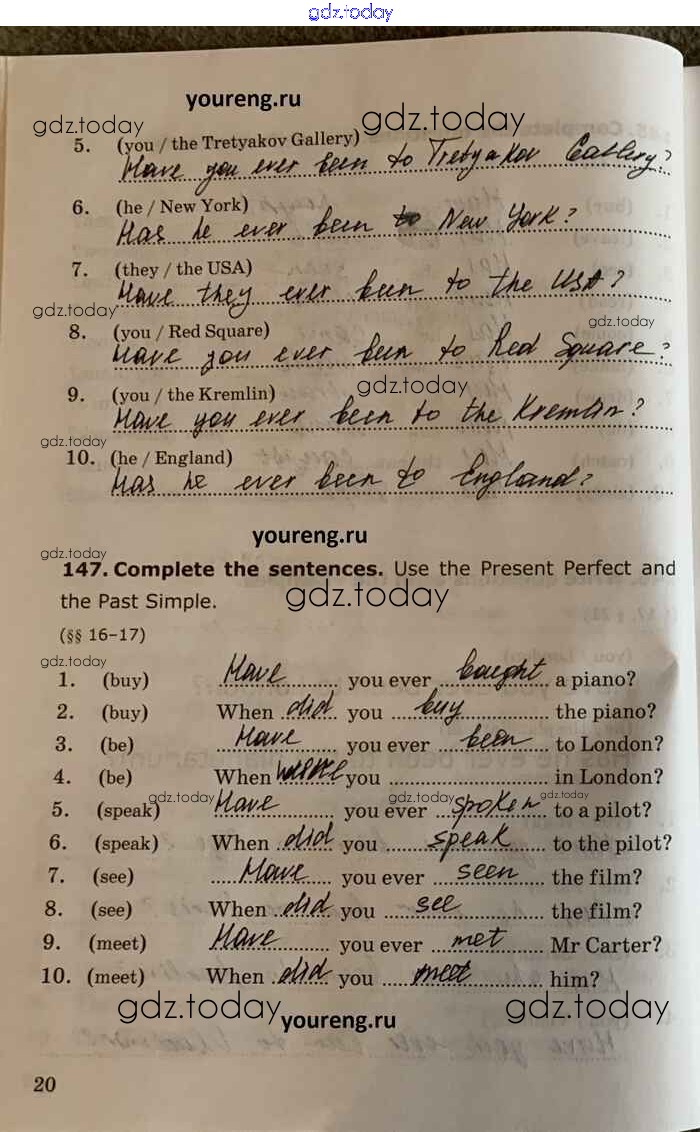 gdz.today
youreng.ru
gdz.today gdz.today
5. (you / the Tretyakov Gallery)
Have you ever been to Tretyakov Gallery?
6. (he / New York)
Has he ever been to New York?
7. (they / the USA)
Have they ever been to the USA?
gdz.today gdz.today
8. (you / Red Square)
Have you ever been to Red Square?
9. (you / the Kremlin)
gdz.today
Have you ever been to the Kremlin?
gdz.today
10. (he / England)
Has he ever been to England?
youreng.ru
gdz.today
147. Complete the sentences. Use the Present Perfect and
the Past Simple.
gdz.today
(§§ 16–17)
gdz.today
1. (buy) Have you ever bought a piano?
2. (buy) When did you buy the piano?
3. (be) Have you ever been to London?
4. (be) When were you in London?
gdz.today gdz.today gdz.today
5. (speak) Have you ever spoken to a pilot?
6. (speak) When did you speak to the pilot?
7. (see) Have you ever seen the film?
8. (see) When did you see the film?
9. (meet) Have you ever met Mr Carter?
10. (meet) When did you meet him?
gdz.today gdz.today
youreng.ru
20